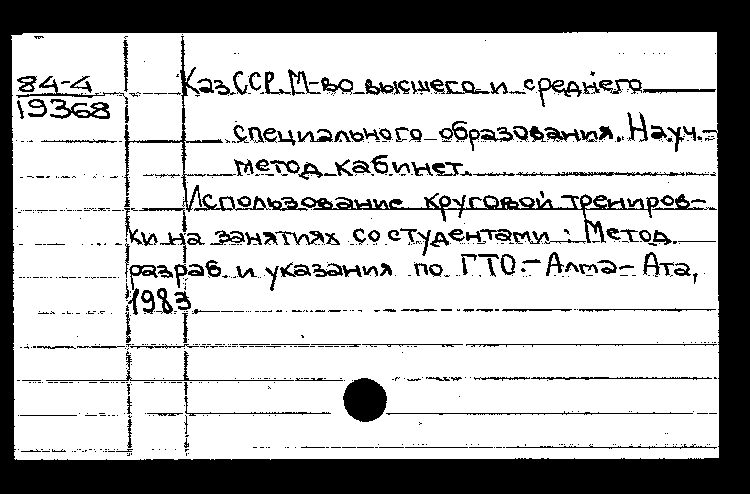 84-4
19368
КазССР. М-во высшего и среднего
специального образования. Науч.-
метод. кабинет.
Использование круговой трениров-
ки на занятиях со студентами : Метод.
разраб. и указания по ГТО.- Алма-Ата,
1983.